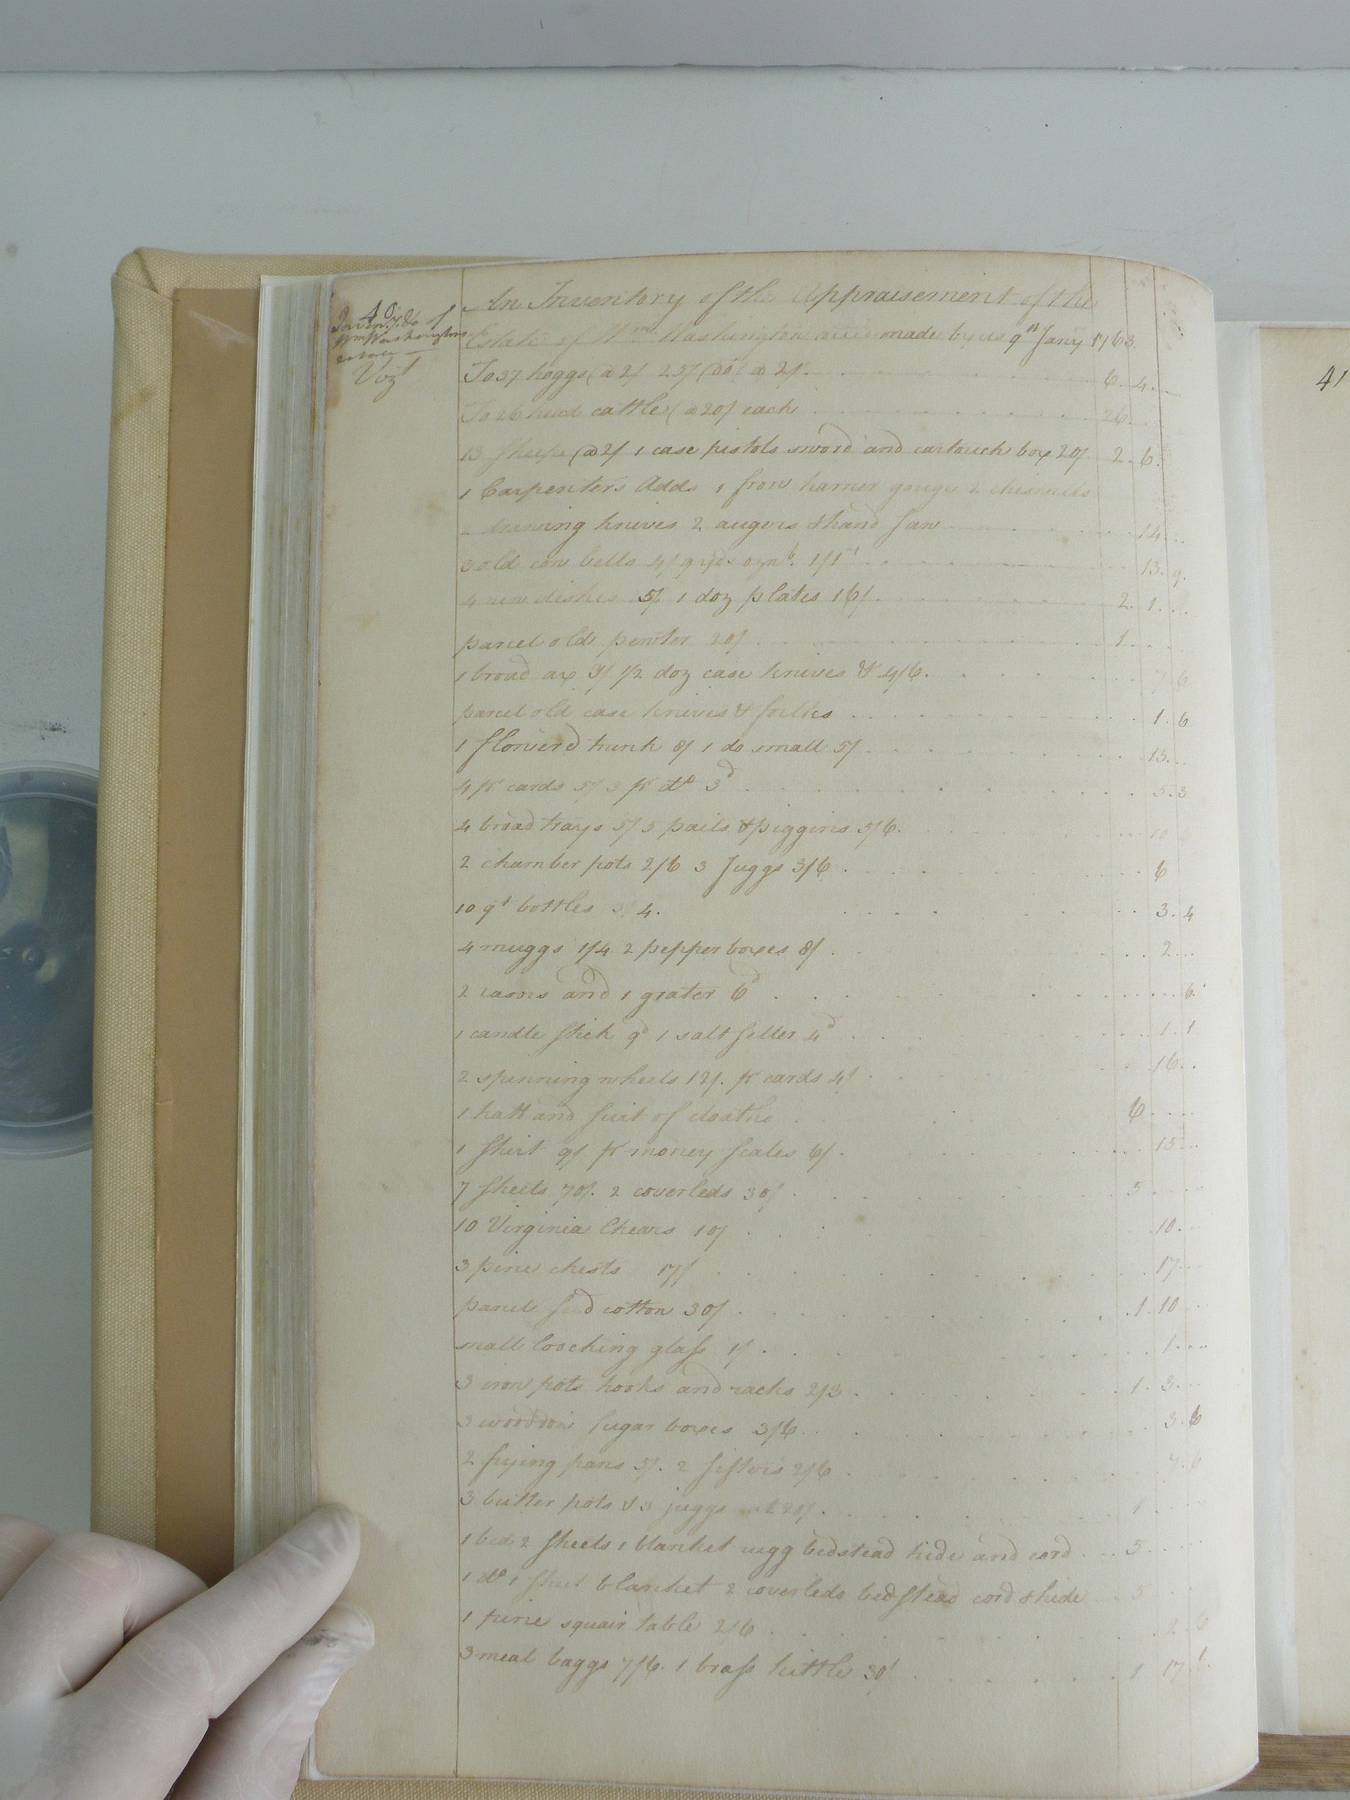 40
Inventy &c of
Wm Washingtons
estate
Vozt
An Inventory of the Appraisement of the
Estate of Wm Washington made by us 9th Jany 1763
To 37 hoggs (a 2/ 25/ (do a 2/. 6. 4.
To 26 head cattle (a 20/ each 26.
13 Sheeps (a 2/ 1 case pistols sword and cartouch box 20/ 2. 6.
1 Carpenters Adds 1 frow hamer gouge 2 chissells
2 drawing knives 2 augers & hand Saw 14
3 old cow bells 4/ 13. 9.
4 new dishes 5/ 1 doz plates 16/. 2. 1.
parcel old pewter 20/ 1.
1 broad ax 3/ 1/2 doz case knives & 4/6. 7. 6
parcel old case knives & forlks 1. 6
1 flowerd trunk 8/ 1 do small 5/ 13.
4 pr cards 5/ 3 pr do 3d 5. 3
4 broad trays 5/ 5 pails & piggins 5/6. 10
2 chamber pots 2/6 3 Juggs 3/6. 6
10 qt bottles 3/4. 3. 4
4 muggs 1/4 2 pepper boxes 8/. 2
2 and 1 grater 6d 6.
1 candle Stick 9d 1 salt Seller 4d 1. 1
2 spinning wheels 12/. pr cards 4/ 16.
1 hatt and Suit of cloaths 6
1 Shirt 9/ pr money Scales 6/. 15
7 Sheets 70/. 2 coverleds 30/. 5
10 Virginia Chears 10/ 10.
3 pine chests 17/ 17
parcel Seed cotton 30/. 1. 10
small loocking glass 1/. 1.
3 iron pots hooks and racks 2/3. 1. 3.
3 woodden Sugar boxes 3/6. 3. 6
2 frying pans 5/. 2 Siftors 2/6. 7. 6
3 butter pots & 3 juggs 20/. 1
1 bed 2 Sheets 1 blanket rugg bedstead hide and cord 5
1 do 1 Sheet blanket 2 coverleds bedstead cord & hide 5
1 pine squair table 2/6. 2. 6
3 meal baggs 7/6. 1 brass kittle 30/ 1 17
41